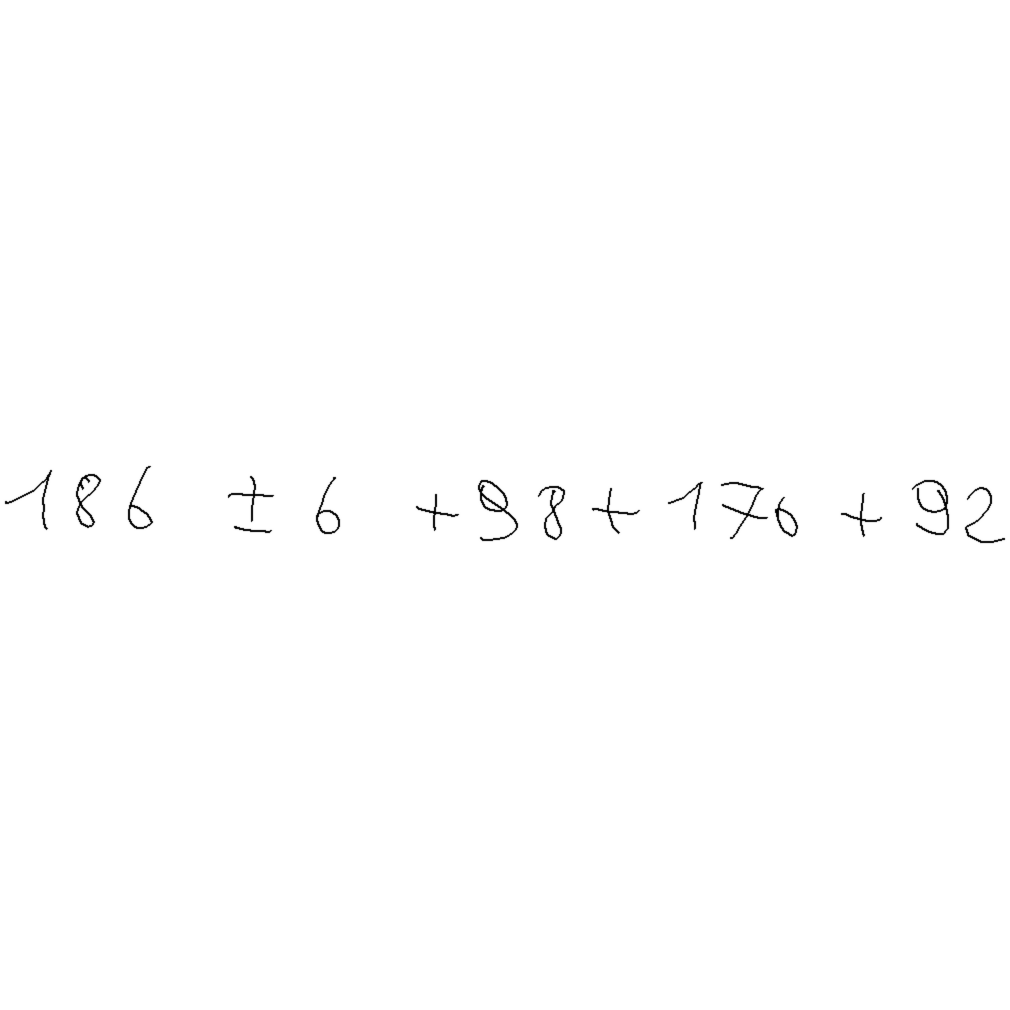 186 ± 6 + 98 + 176 + 92